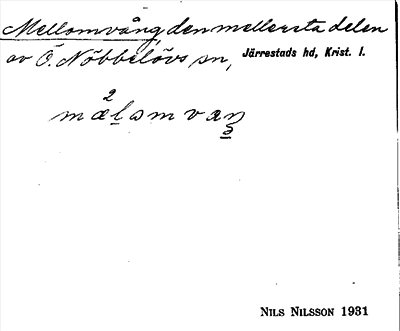 Mellomvång, den mellersta delen
av Ö. Nöbbelövs sn, Järrestads hd, Krist. l.
mæ²lomvaŋ
NILS NILSSON 1931